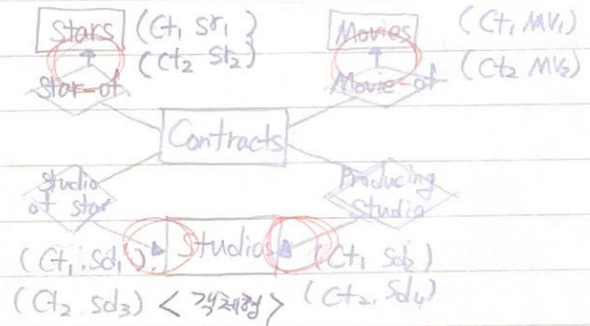 Stars (Ct1 Sr1) Movies (Ct1 MV1)
(Ct2 Sr2) (Ct2 MV2)
Star-of Movie-of
Contracts
Studio of star
Producing Studio
Studios
(Ct1. Sd1) (Ct1 Sd2)
(Ct2. Sd3) <객체형> (Ct2. Sd4)